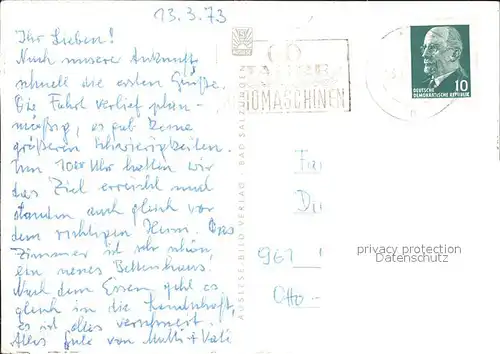 13.3.73
Ihr Lieben!
Nach unsere Ankunft
schnell die ersten Grüße.
Die Fahrt verlief plan-
mäßig, es gab keine
größeren Schwierigkeiten.
Um 10⁰⁰ Uhr hatten wir
das Ziel erreicht und
standen auch gleich vor
dem richtigen Heim. Das
Zimmer ist sehr schön,
ein neues Bettenhaus.
Nach dem Essen geht es
gleich in die Landschaft,
es ist alles verschneit.
Alles Gute von Mutti + Vati
AUSLESE-BILD-VERLAG · BAD SALZUNGEN
DEUTSCHE
DEMOKRATISCHE REPUBLIK
10
961
Otto-
privacy protection
Datenschutz